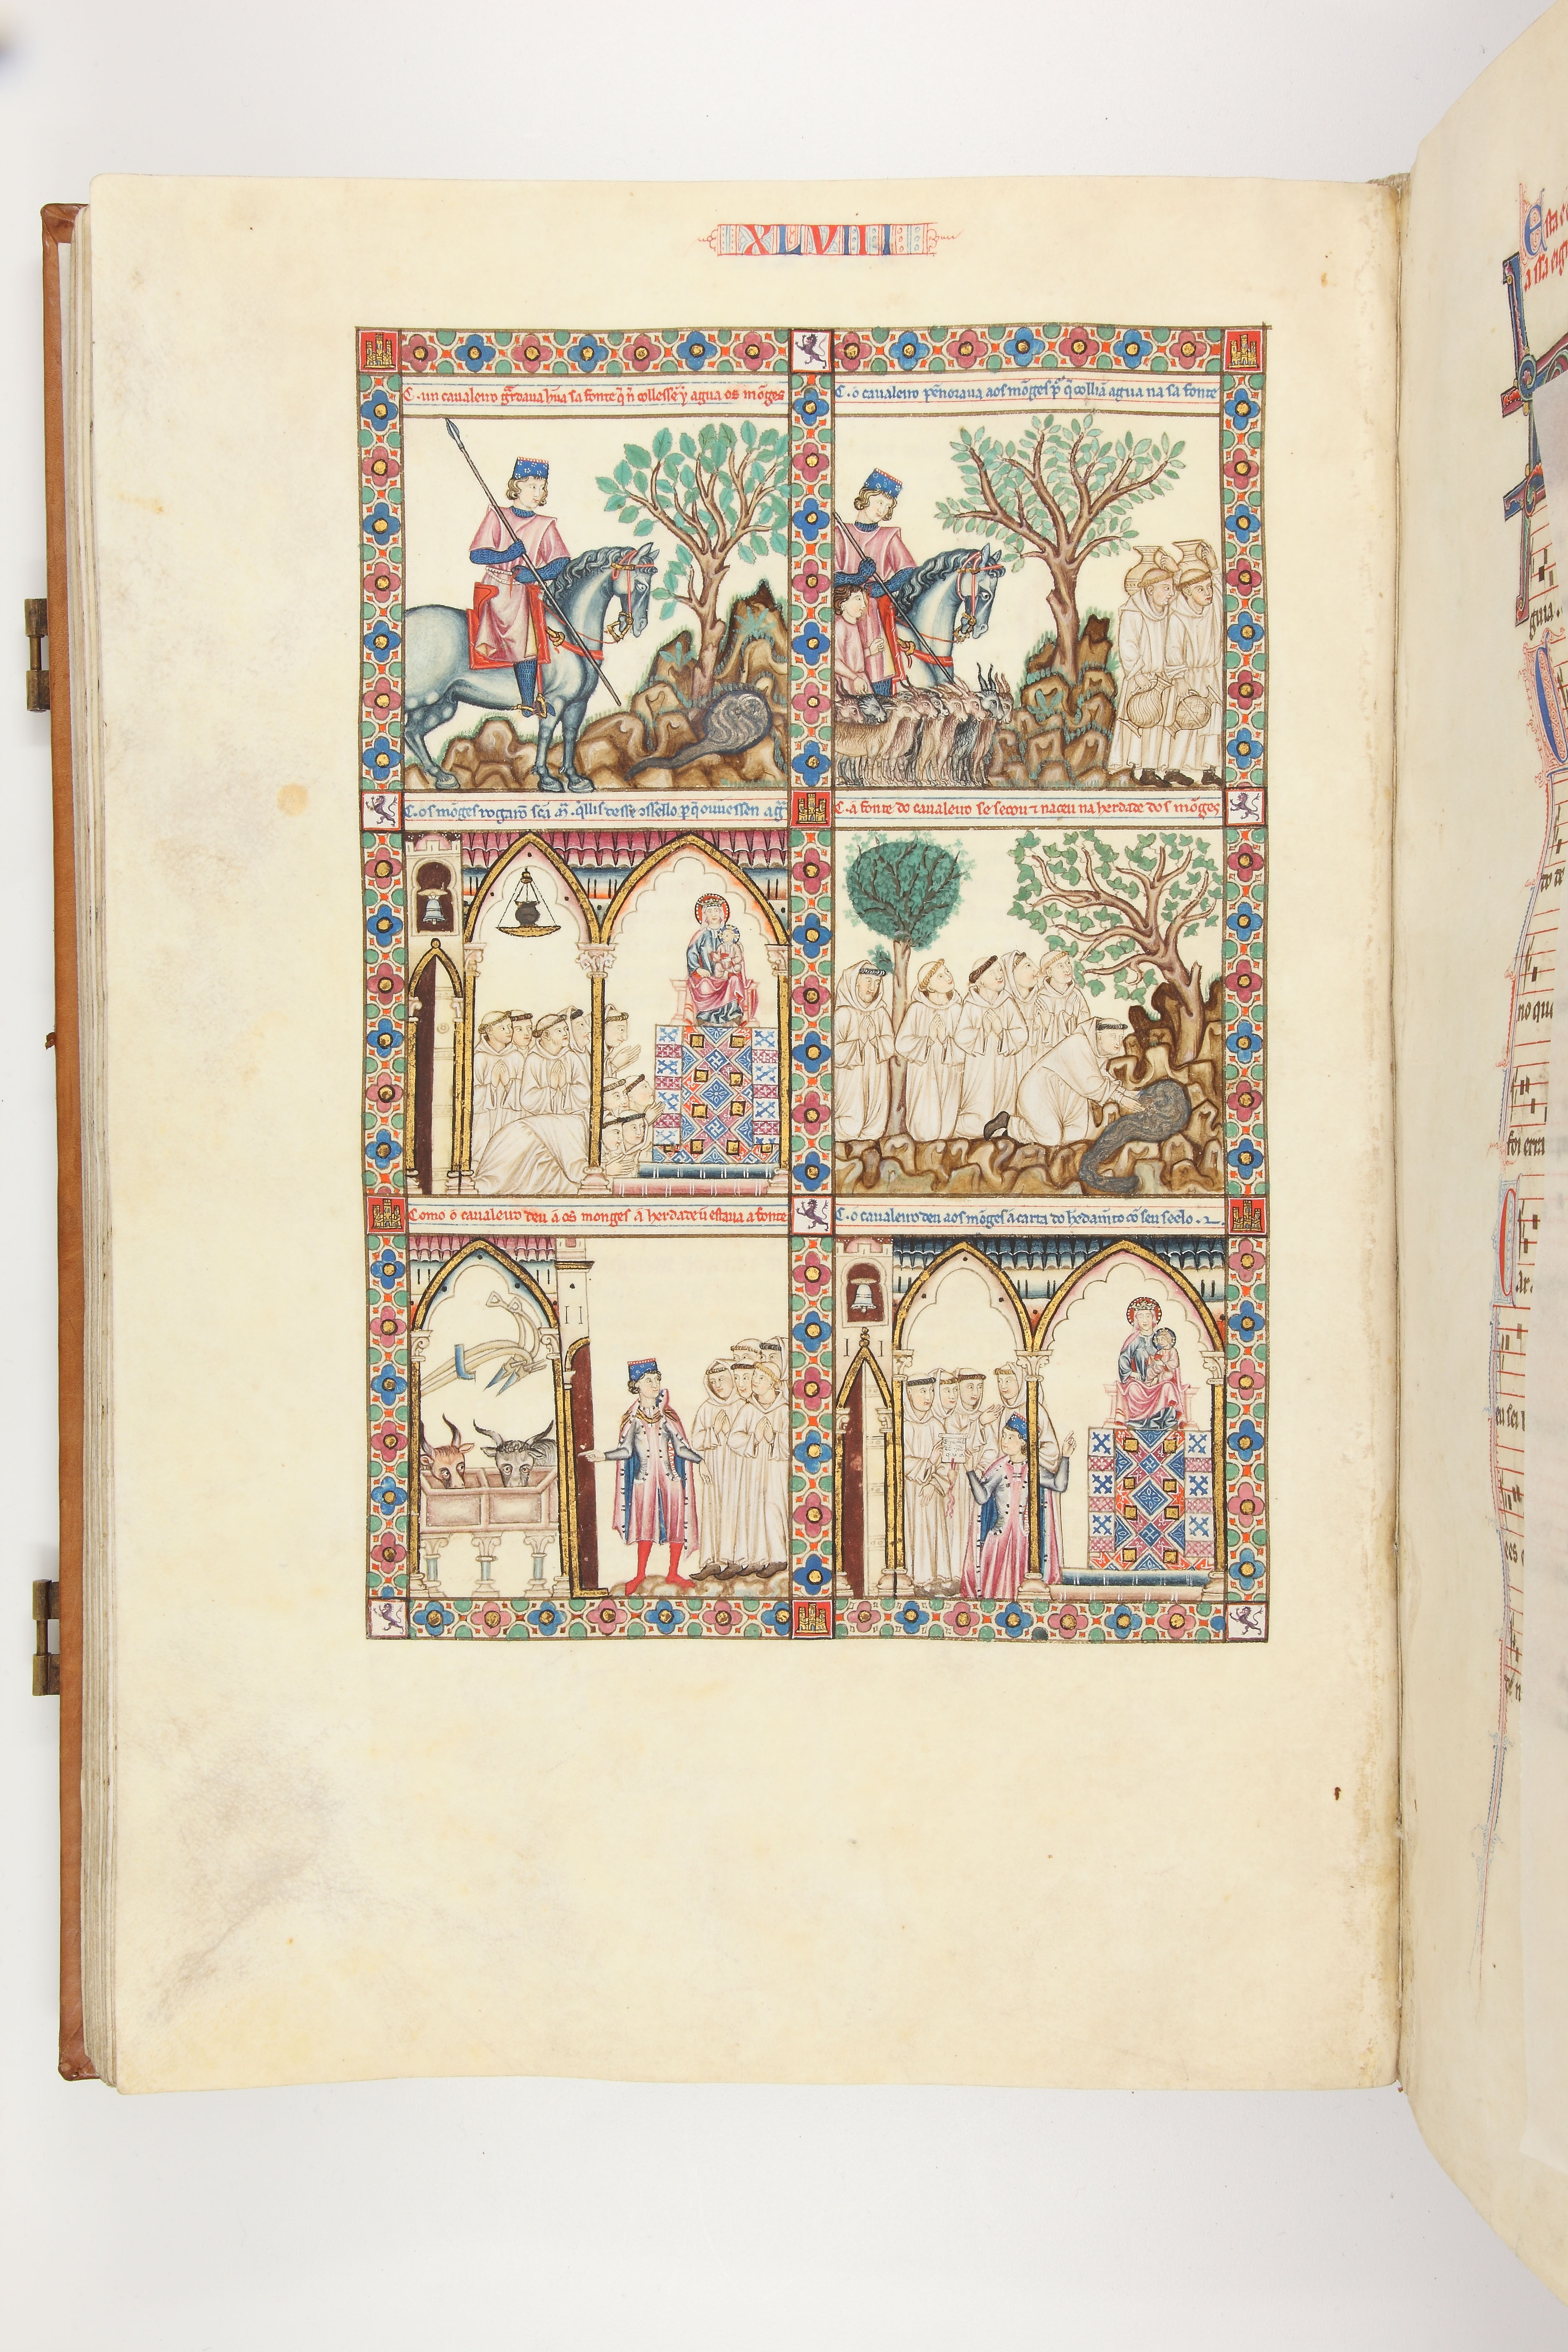 XLVIII
C · un caualeiro gr̃daua hũa sa fonte q̃ ñ collessẽ y agua os mõges
C · o caualeiro pẽnoraua aos mõges pᵉ q̃ colliã agua na sa fonte
C · os mõges rogarõ scã m̃ · q̃llis desse ↄssello p̱ q̃ ouuessen ag̃
C · a fonte do caualeiro se secou ⁊ naceu na herdade dos mõges
Como o caualeiro deu a os monges a herdade ũ estaua a fonte
C · o caualeiro deu aos mõges a carta do h̃dam̃to cõ seu seelo ·
guia.
no qui
foi erra
ar.